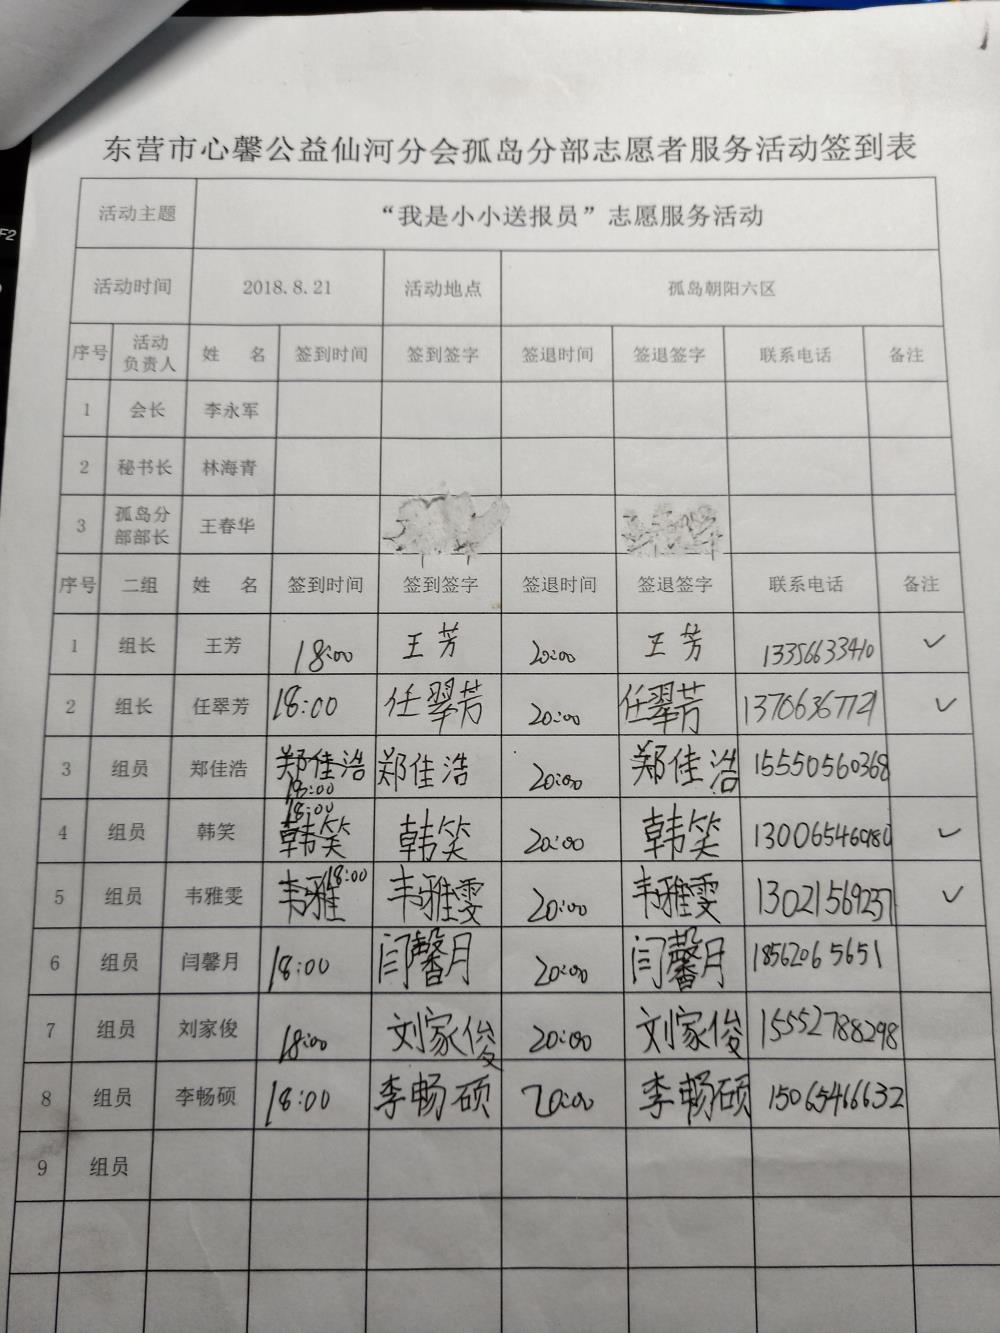 东营市心馨公益仙河分会孤岛分部志愿者服务活动签到表
活动主题 “我是小小送报员”志愿服务活动
活动时间 2018.8.21 活动地点 孤岛朝阳六区
序号 活动负责人 姓 名 签到时间 签到签字 签退时间 签退签字 联系电话 备注
1 会长 李永军
2 秘书长 林海青
3 孤岛分部部长 王春华
序号 二组 姓 名 签到时间 签到签字 签退时间 签退签字 联系电话 备注
1 组长 王芳 18:00 王芳 20:00 王芳 13356633410 ✓
2 组长 任翠芳 18:00 任翠芳 20:00 任翠芳 13706367721 ✓
3 组员 郑佳浩 郑佳浩 18:00 郑佳浩 20:00 郑佳浩 15550560368
4 组员 韩笑 18:00 韩笑 韩笑 20:00 韩笑 ✓
5 组员 韦雅雯 韦雅 18:00 韦雅雯 20:00 韦雅雯 13021569237 ✓
6 组员 闫馨月 18:00 闫馨月 20:00 闫馨月 18562065651
7 组员 刘家俊 18:00 刘家俊 20:00 刘家俊 15552788298
8 组员 李畅硕 18:00 李畅硕 20:00 李畅硕 15065466632
9 组员
F2